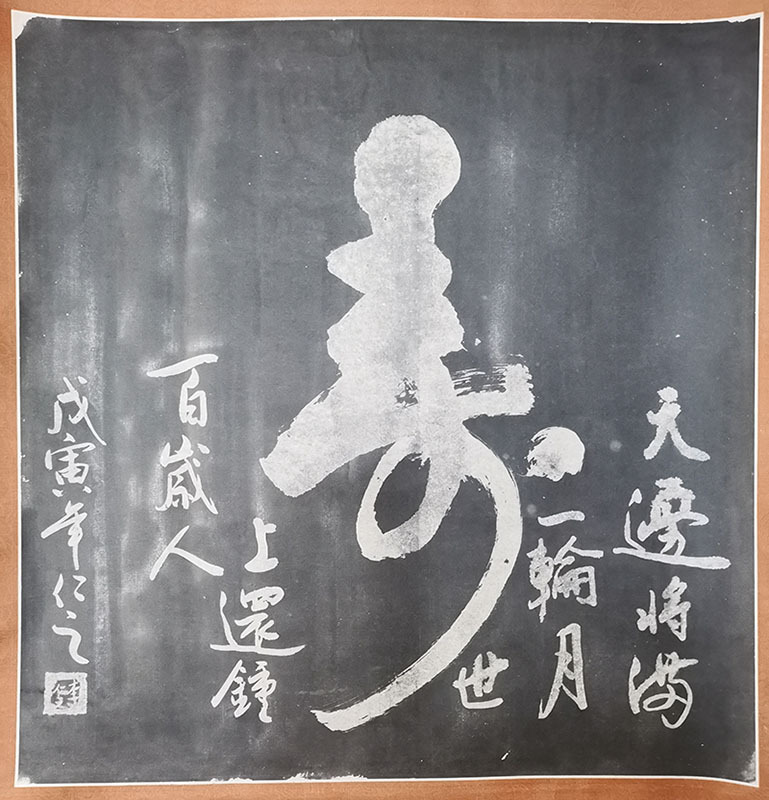 寿
天邊將滿
一輪月
世
上還鍾
百歲人
戊寅年仁之